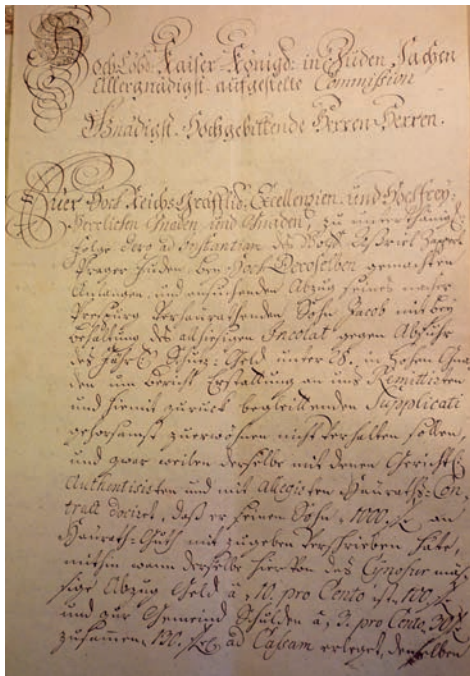 Hoch Löbl. Kaiser Königl. in Juden Sachen
Allergnädigst aufgestelte Commission
Gnädigst Hochgebittende Herren Herren.
Euer Hoch Reichs Gräfflich Excellenzien und Hochfrey-
Herrlichen Gnaden und Gnaden, zu unterthänig
folge dero ad Instantiam des Wolf Gabriel
Prager Juden bey Hoch Deroselben gemachten
Anlangen und ansuchenden Abzug seines nacher
Pressburg verheurathenden Sohn Jacob mit bey
behaltung des alhiesigen Incolat gegen Abfuhr
des Jährl. Schutz-Geld unter in Hohen Gna-
den um Bericht Erstattung an uns Remittirten
und hiemit zurück begleittenden Supplicati
gehorsamst zuerwöhnen nicht verhalten sollen
und zwar weilen derselbe mit denen Gerichtl.
Authentisirten und mit allegirten Heuraths-Con-
tract dociret, daß er seinen Sohn 1000 f an
Heurath-Guth mit zugeben verschrieben habe,
mithin wann derselbe hiervon das Cynosur mäs-
sige Abzug Geld à 10. pro Cento ist 100 f
und zur Gemeind Schulden à 3. pro Cento 30 f
zusammen 130. f ad Cassam erleget, denselben